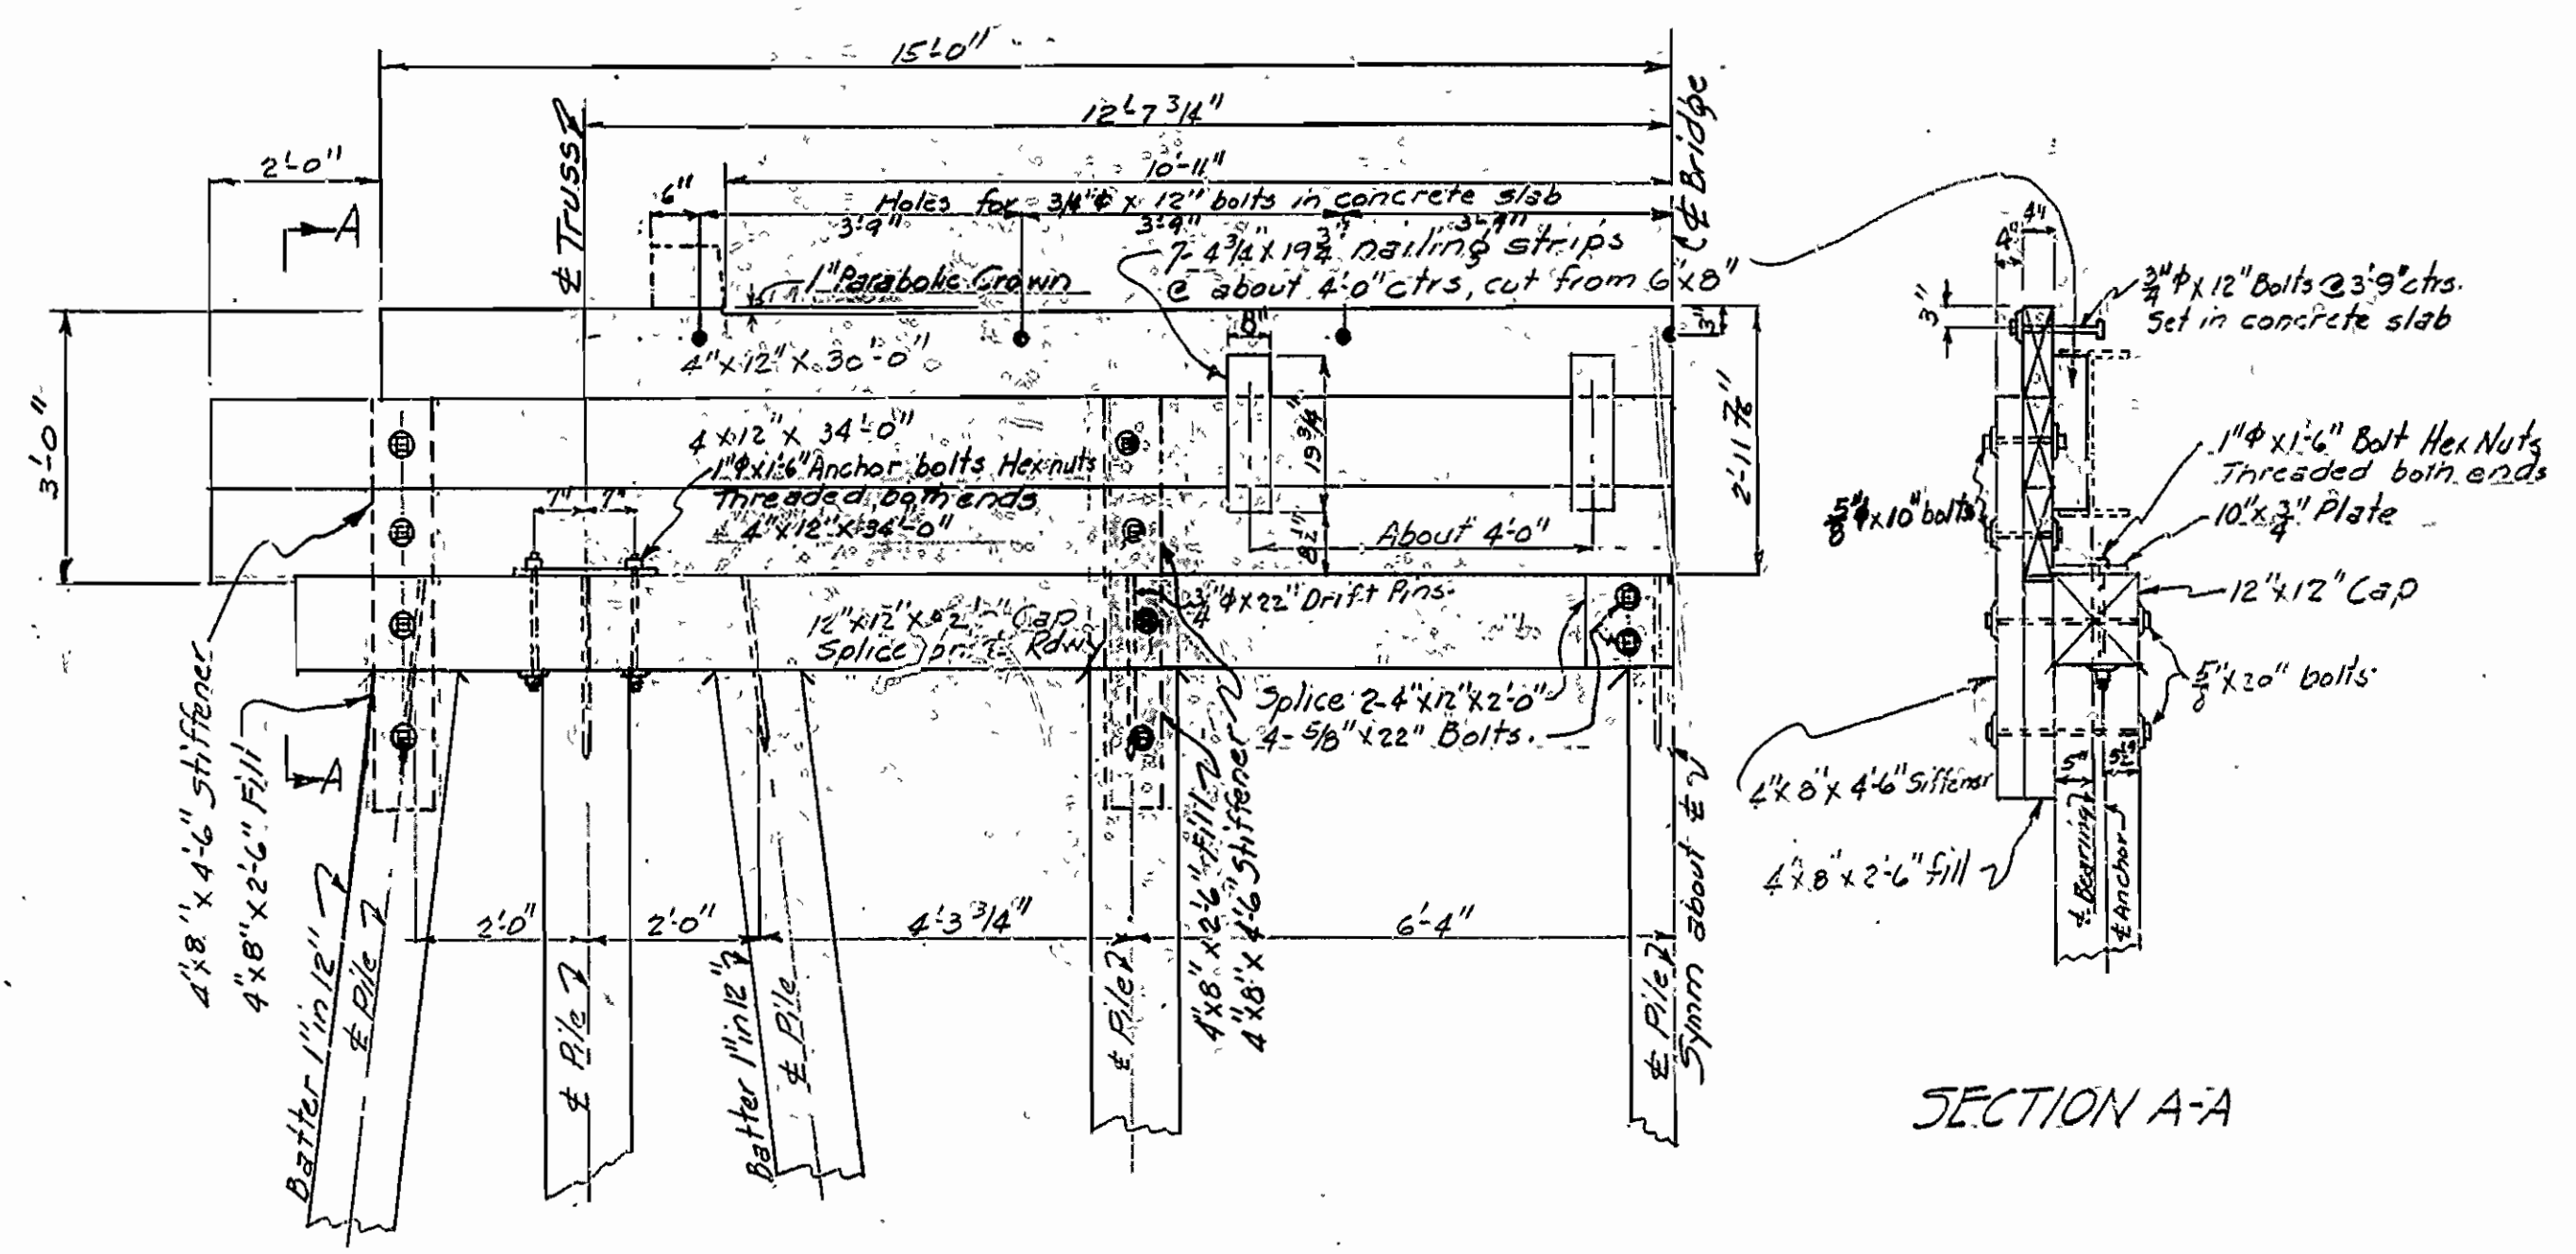 15'-0"
12'-7 3/4"
2'-0"
10'-11"
6"
Holes for 3/4"ϕ x 12" bolts in concrete slab
3'-9"
3'-9"
3'-9"
℄ Truss
℄ Bridge
A
7- 4 3/4" x 19 3/4" nailing strips
@ about 4'-0" ctrs, cut from 6"x8"
1" Parabolic Crown
8"
3"
4"x12"x 30'-0"
3'-0"
2'-11 7/8"
4 x12"x 34'-0"
1"ϕx1'-6" Anchor bolts Hex nuts
Threaded both ends
7"
7"
4"x12"x34'-0"
19 3/4"
8 1/2"
About 4'-0"
3/4"ϕx22" Drift Pins.
12"x12"x Cap
Splice on ℄ Rdwy
Splice 2-4"x12"x2'-0"
4- 5/8"x22" Bolts.
A
4"x8"x4'-6" Stiffener
4"x8"x2'-6" Fill
Batter 1" in 12"
℄ Pile
2'-0"
2'-0"
4'-3 3/4"
6'-4"
℄ Pile
Batter 1" in 12"
℄ Pile
℄ Pile
4"x8"x2'-6" Fill
4"x8"x4'-6" Stiffener
℄ Pile
Symm about ℄
4"
4"
3"
3/4"ϕx12" Bolts @3'-9" ctrs.
Set in concrete slab
1"ϕx1'-6" Bolt Hex Nuts
Threaded both ends
10"x 3/4" Plate
5/8"ϕx10" bolts
12"x12" Cap
5/8"x20" bolts
5"
5 1/2"
4"x8"x4'-6" Siffener
4"x8"x2'-6" fill
℄ Bearing
℄ Anchor
SECTION A-A